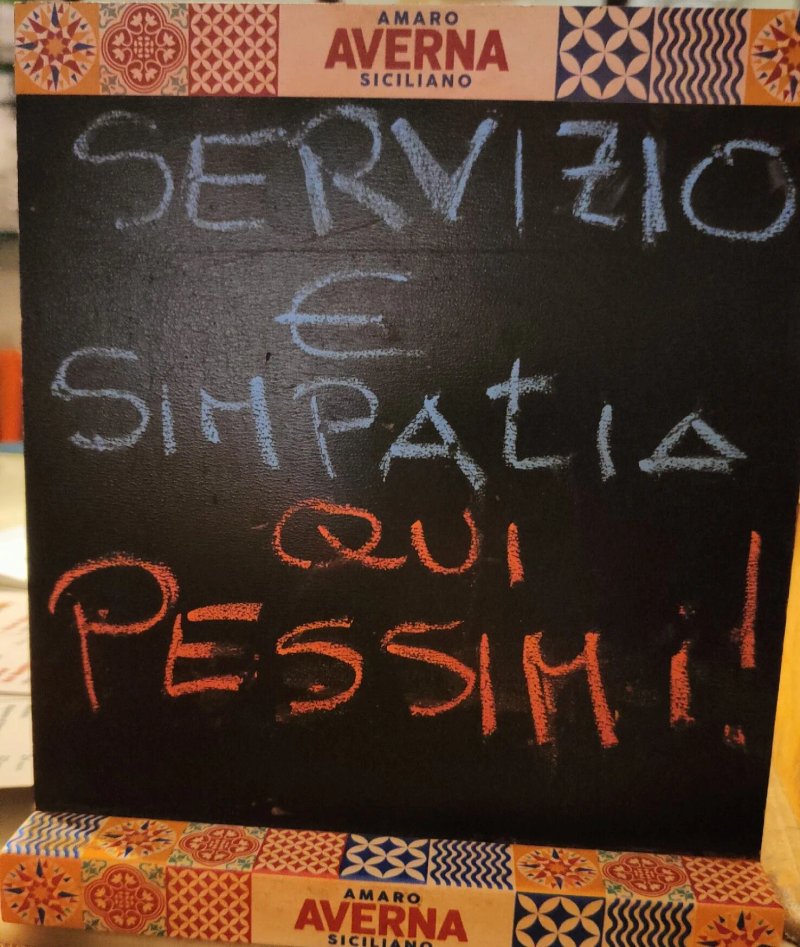 AMARO
AVERNA
SICILIANO
SERVIZIO
E
SIMPATIA
QUI
PESSIMi!
AMARO
AVERNA
SICILIANO